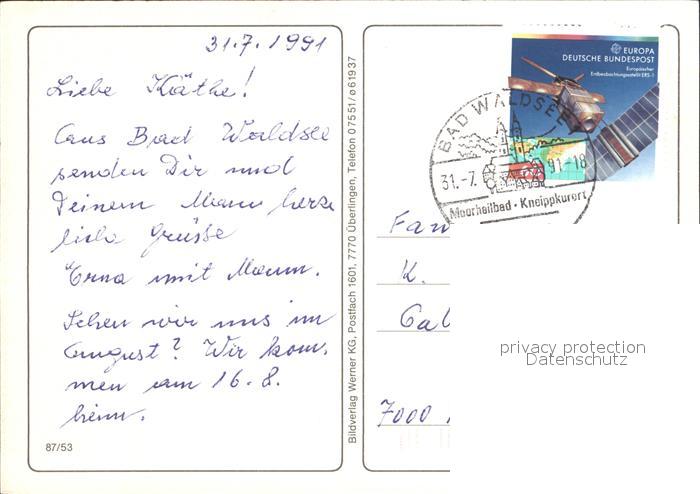 31.7.1991
Liebe Käthe!
Aus Bad Waldsee
senden Dir und
Deinem Mann herz
liche Grüsse
Erna mit Mann.
Sehen wir uns im
August? Wir kom-
men am 16.8.
heim.
87/53
Bildverlag Werner KG, Postfach 1601, 7770 Überlingen, Telefon 07551/61937
EUROPA
DEUTSCHE BUNDESPOST
Europäischer
Erdbeobachtungssatellit ERS-1
BAD WALDSEE
31.-7. 91-18
Moorheilbad · Kneippkurort
Fam
K.
Gal
7000
privacy protection
Datenschutz